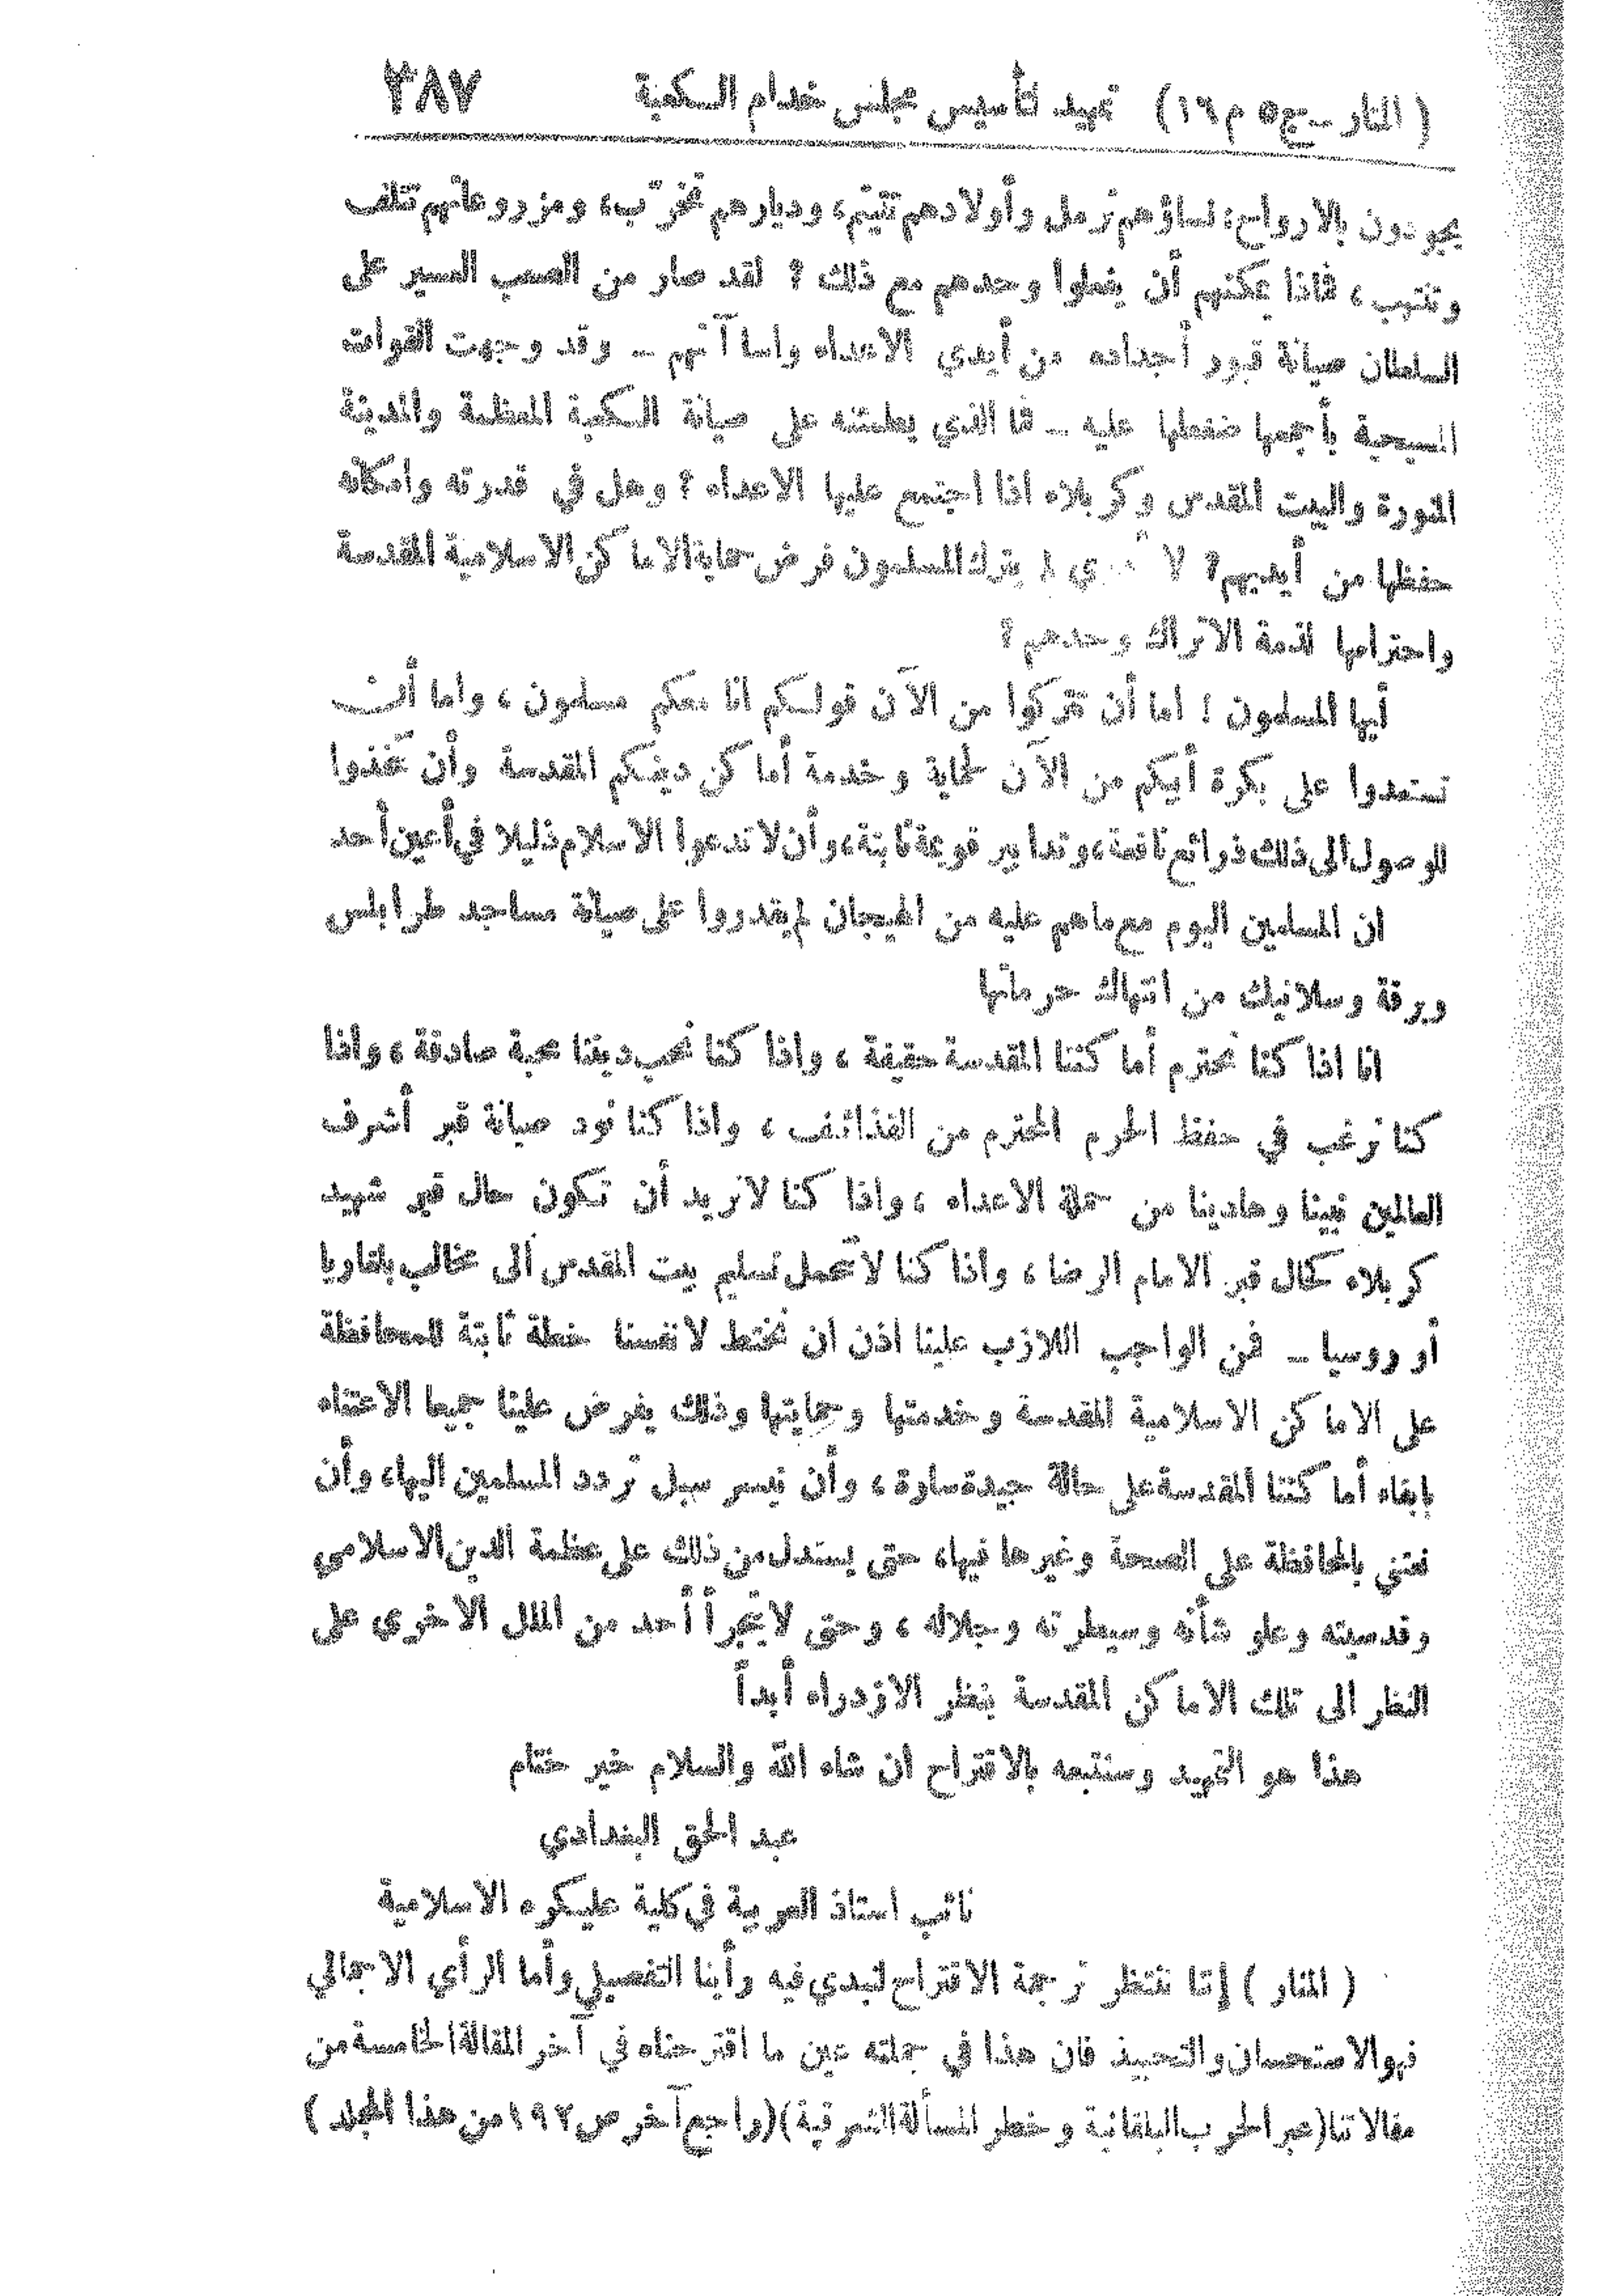 ( المنار ــ ج ٥ م ١٦ ) تمهيد لتأسيس مجلس خدام الكعبة ٣٨٧
يجودون بالارواح، نساؤهم ترمل وأولادهم تتيتم، وديارهم تخرّب، ومزروعاتهم تتلف
وتنهب، فماذا يمكنهم أن يفعلوا وحدهم مع ذلك ؟ لقد صار من الصعب العسير على
السلطان صيانة قبور أجداده من أيدي الاعداء واساآتهم ــ وقد وجهت القوات
المسيحية بأجمعها ضغطها عليه ــ فما الذي يطمئنه على صيانة الكعبة المعظمة والمدينة
المنورة والبيت المقدس وكربلاء اذا اجتمع عليها الاعداء ؟ وهل في قدرته وامكانه
حفظها من أيديهم؟ لا ي لم يترك المسلمون فرض حماية الاماكن الاسلامية المقدسة
واحترامها لذمة الاتراك وحدهم ؟
أيها المسلمون ! اما أن تتركوا من الآن قولكم انا معكم مسلمون ، واما أن
تستعدوا على بكرة أبيكم من الآن لحماية وخدمة أماكن دينكم المقدسة وأن تتخذوا
للوصول الى ذلك ذرائع نافعة، وتدابير قويمة ثابتة، وأن لا تدعوا الاسلام ذليلا في أعين أحد
ان المسلمين اليوم مع ماهم عليه من الهيجان لم يقدروا على صيانة مساجد طرابلس
وبرقة وسلانيك من انتهاك حرماتها
انا اذا كنا نحترم أماكننا المقدسة حقيقة ، واذا كنا نحب ديننا محبة صادقة ، واذا
كنا نرغب في حفظ الحرم المحترم من القذائف ، واذا كنا نود صيانة قبر أشرف
العالمين نبينا وهادينا من حملة الاعداء ، واذا كنا لا نريد أن تكون حال قبر شهيد
كربلاء كحال قبر الامام الرضا ، واذا كنا لا نتحمل تسليم بيت المقدس الى مخالب بلغاريا
أو روسيا ــ فمن الواجب اللازب علينا اذن ان نختط لانفسنا خطة ثابتة للمحافظة
على الاماكن الاسلامية المقدسة وخدمتها وحمايتها وذلك يفرض علينا جميعا الاعتناء
بإبقاء أماكننا المقدسة على حالة جيدة سارة ، وأن نيسر سبل تردد المسلمين اليها، وأن
نعتني بالمحافظة على الصحة وغيرها فيها، حتى يستدل من ذلك على عظمة الدين الاسلامي
وقدسيته وعلو شأنه وسيطرته وجلاله ، وحتى لا يتجرأ أحد من الملل الاخرى على
النظر الى تلك الاماكن المقدسة بنظر الازدراء أبداً
هذا هو التمهيد وسنتبعه بالاقتراح ان شاء الله والسلام خير ختام
عبد الحق البغدادي
نائب استاذ العربية في كلية عليكره الاسلامية
( المنار ) إنا ننتظر ترجمة الاقتراح لنبدي فيه رأينا التفصيلي وأما الرأي الاجمالي
فهو الاستحسان والتحبيذ فان هذا في جملته عين ما اقترحناه في آخر المقالة الخامسة من
مقالاتنا (عبر الحرب البلقانية وخطر المسألة الشرقية) (راجع آخر ص ١٩٢ من هذا المجلد )